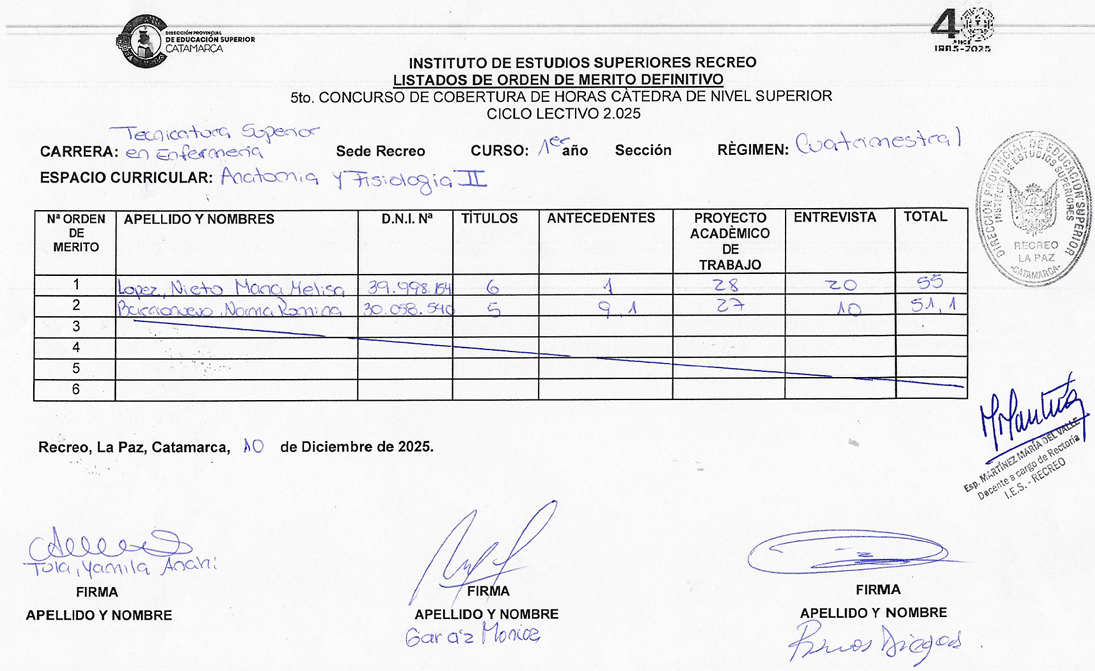 DIRECCIÓN PROVINCIAL
DE EDUCACIÓN SUPERIOR
CATAMARCA
40
AÑOS
1985-2025
INSTITUTO DE ESTUDIOS SUPERIORES RECREO
LISTADOS DE ORDEN DE MERITO DEFINITIVO
5to. CONCURSO DE COBERTURA DE HORAS CÀTEDRA DE NIVEL SUPERIOR
CICLO LECTIVO 2.025
CARRERA: Tecnicatura Superior en Enfermeria Sede Recreo CURSO: 1er año Sección RÈGIMEN: Cuatrimestral
ESPACIO CURRICULAR: Anatomia y Fisiologia II
DIRECCIÓN PROVINCIAL DE EDUCACIÓN SUPERIOR
INSTITUTO DE ESTUDIOS SUPERIORES
RECREO
LA PAZ
-CATAMARCA-
Nª ORDEN DE MERITO APELLIDO Y NOMBRES D.N.I. Nª TÍTULOS ANTECEDENTES PROYECTO ACADÈMICO DE TRABAJO ENTREVISTA TOTAL
1 Lopez, Nieto Maria Melisa 39.998.154 6 1 28 20 55
2 Barrionuevo, Norma Romina 30.058.540 5 9,1 27 10 51,1
3
4
5
6
Recreo, La Paz, Catamarca, 10 de Diciembre de 2025.
Esp. MARTÍNEZ MARÍA DEL VALLE
Docente a cargo de Rectoría
I.E.S. - RECREO
Tula, Yamila Anahi
FIRMA FIRMA FIRMA
APELLIDO Y NOMBRE APELLIDO Y NOMBRE APELLIDO Y NOMBRE